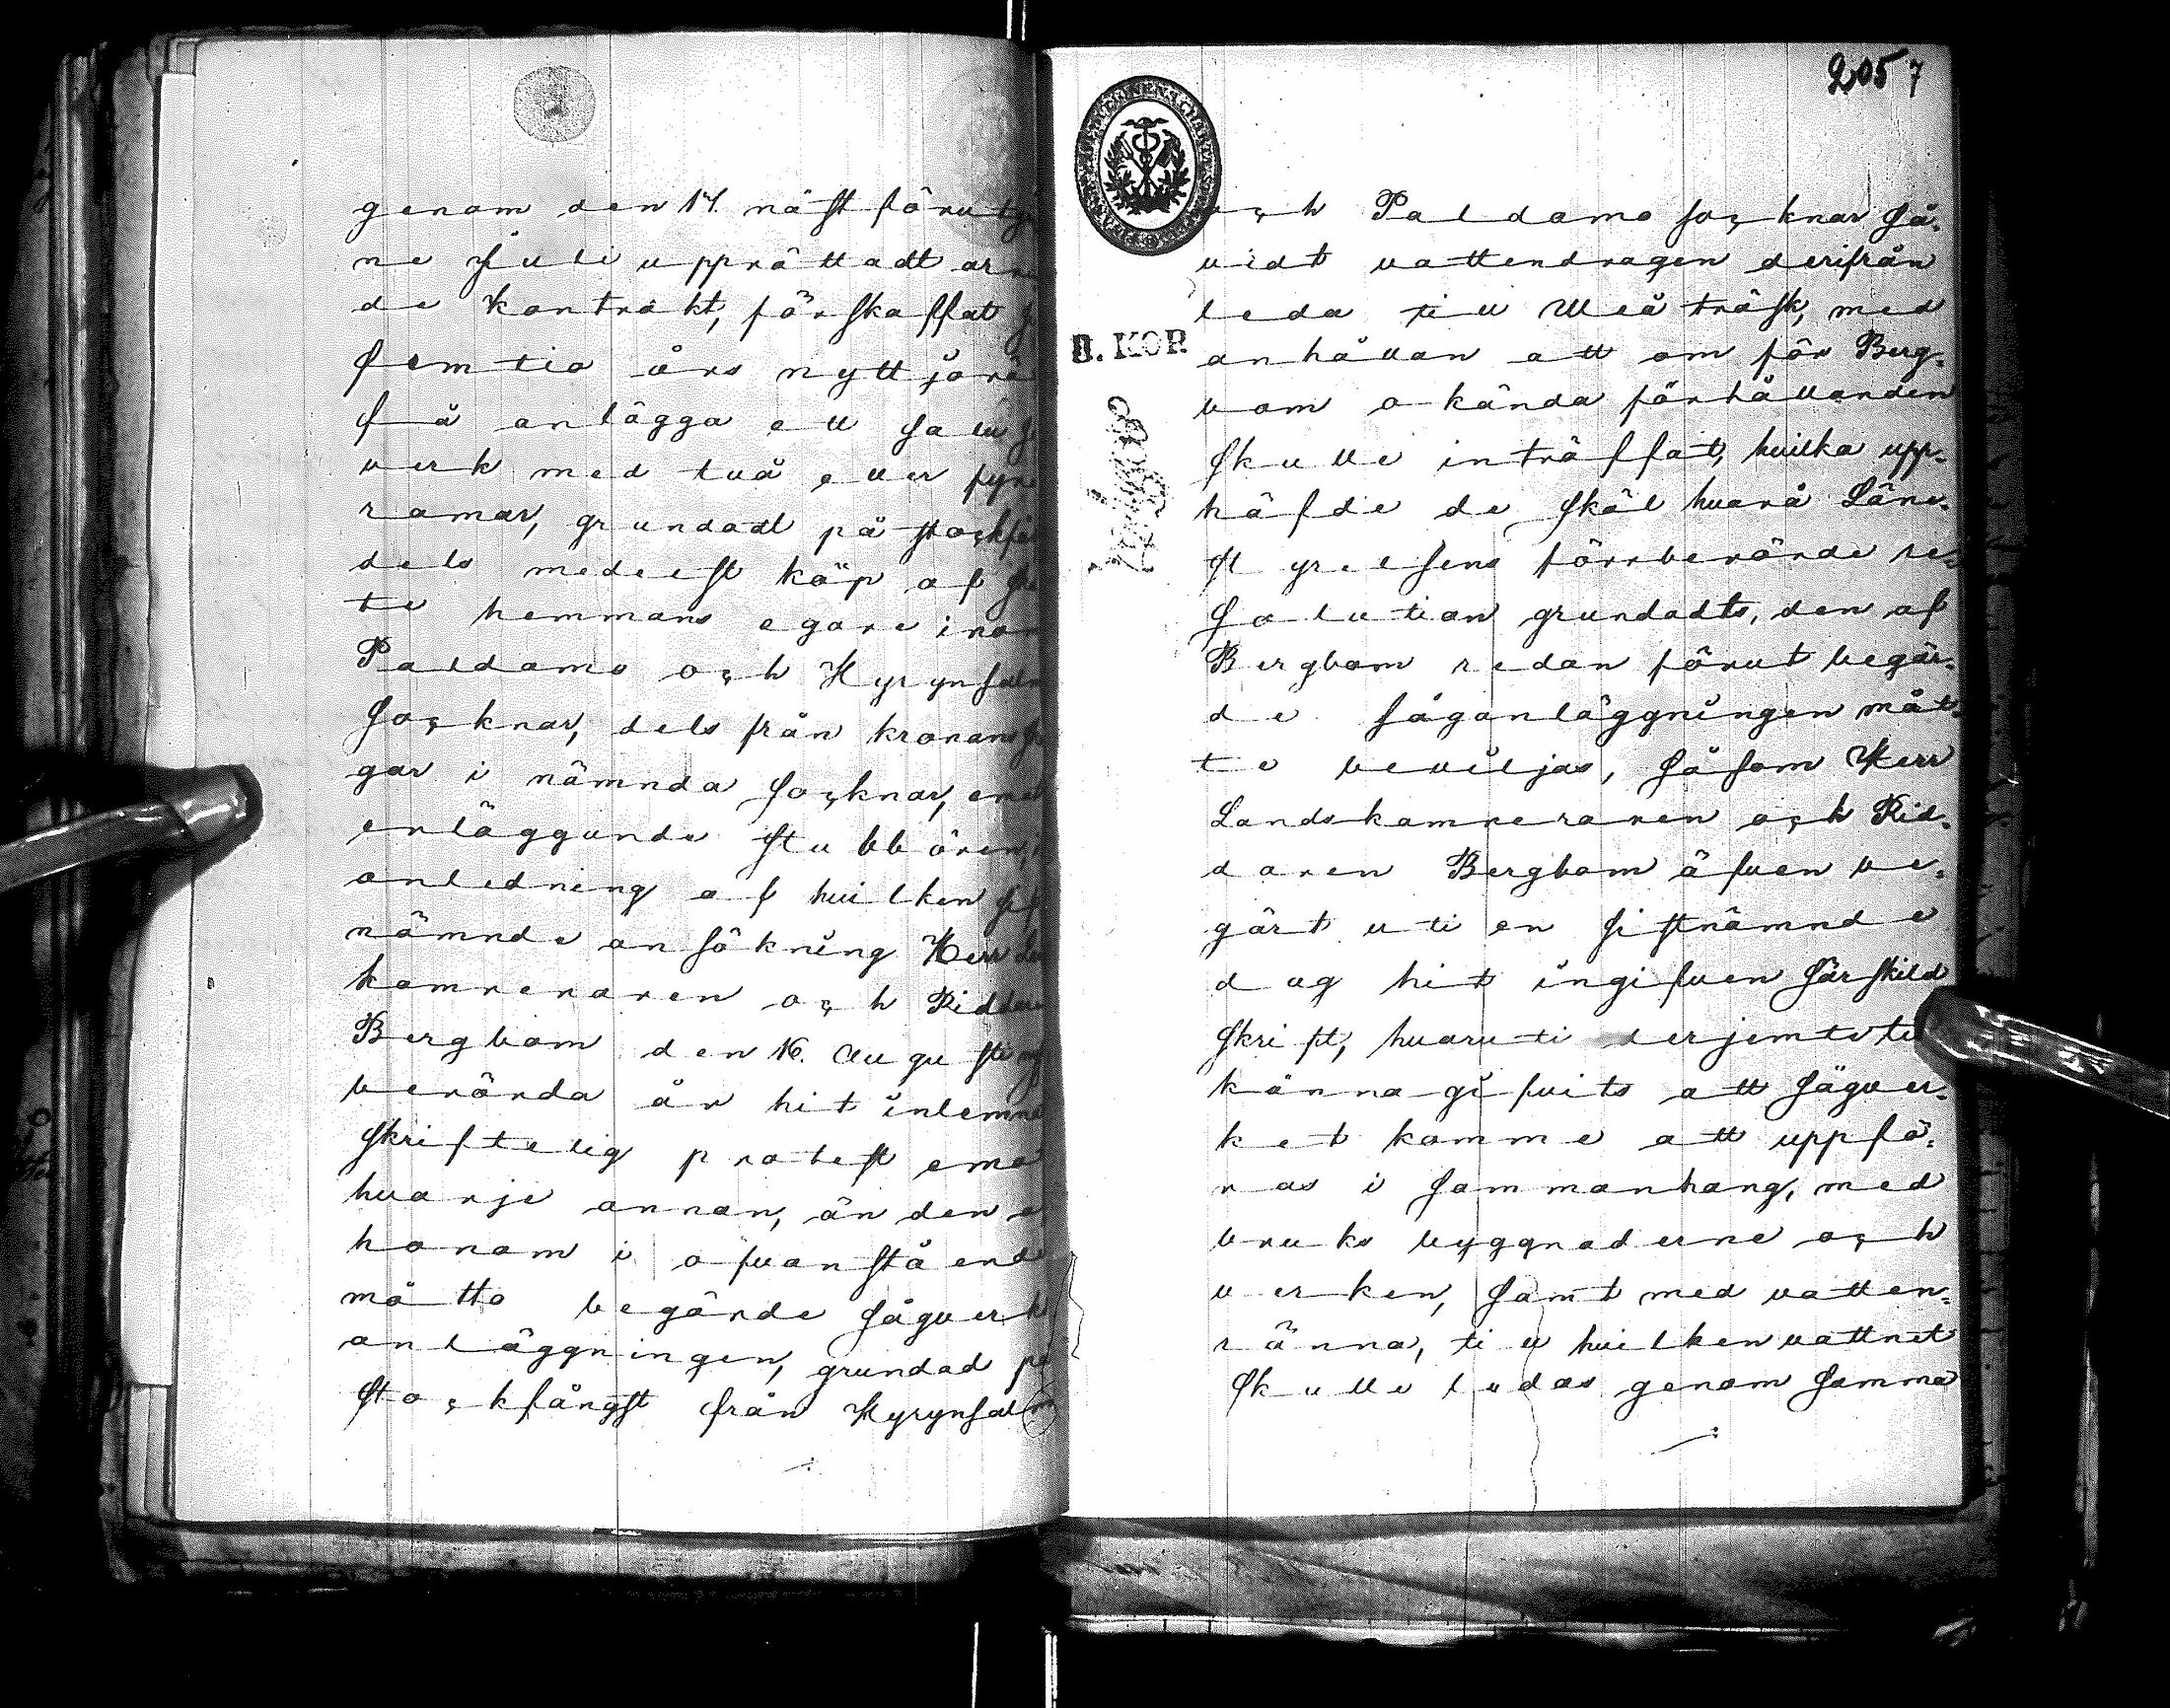 genom den 17. näst förutg
ne Juli upprättadt arren
de kontrakt, förskaffat
femtio års nyttjöre
få anlägga ett salu
verk med två eller fyra
ramar, grundadt på stockfå
dels medelst köp af
te hemmans egare inom
Paldamo och Hyrynsalm
socknar, dels från kronans
gar i nämnda socknar, emot
erläggande stubbören, i
anledning af hvilken
nämnde ansökning Herr
kamreraren och Riddare
Bergbom den 16. Augusti
berörda år hit inlemna
skriftelig protest emo
hvarje annan, än den a
honom i ofvanstående
måtto begärde sågverk
anläggningen, grundad på
stockfångst från Hyrynsalm
205 7
B. KOP.
och Paldamo socknar så-
vidt vattendragen derifrån
leda till Uleå träsk, med
anhållan att om för Berg-
bom okända förhållanden
skulle inträffat, hvilka upp-
häfde de skäl hvarå Läne-
styrelsens förrberörde re-
solution grundadts, den af
Bergbom redan förut begär-
de såganläggningen måt-
te beviljas, såsom Herr
Landskamreraren och Rid-
daren Bergbom äfven be-
gärt uti en sistnämnde
dag hit ingifven särskild
skrift, hvaruti derjemte till
känna gifvits att sågver-
ket komme att uppfö-
ras i sammanhang, med
bruks byggnaderne och
verken, samt med vatten-
ränna, till hvilken vattnet
skulle ledas genom samma